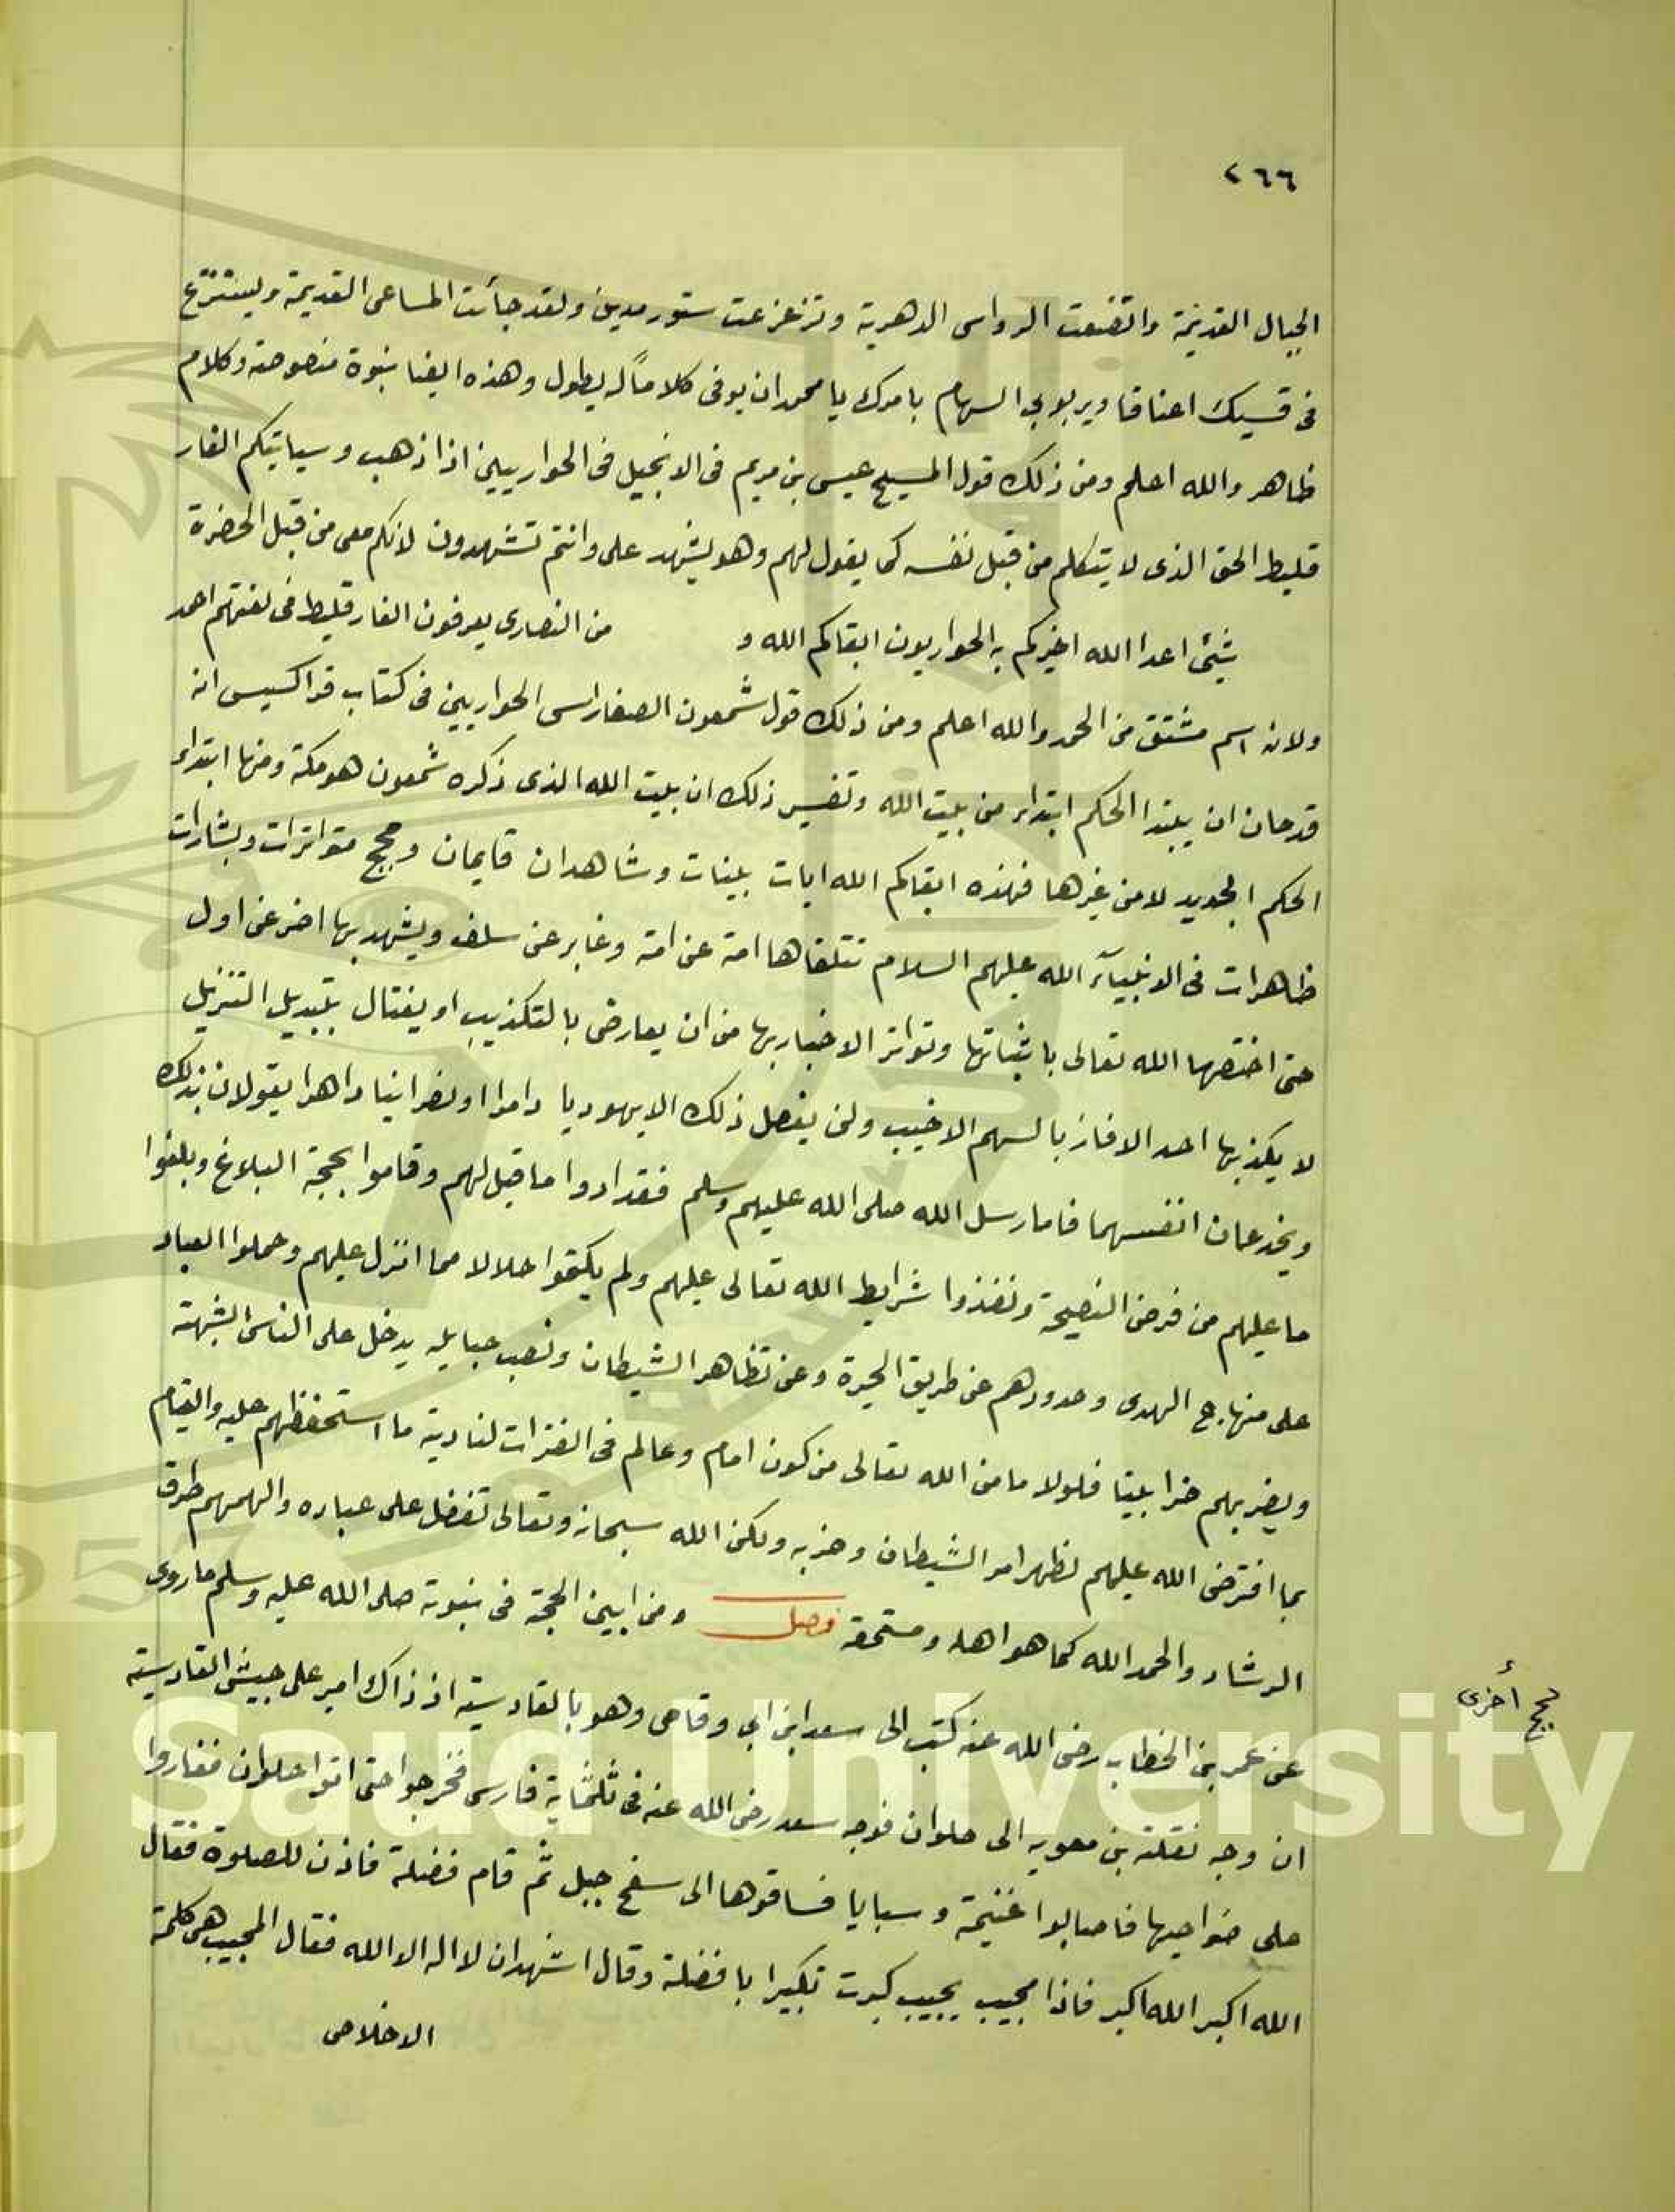 ٢٦٦
الجبال القديمة واتضعت الرواسى الدهرية وتزعزعت ستور مدين ولقد جائت المساعى القديمة وليستنزع
فى قسيك اعناقا ويربوبى السهام بامرك يا محمد ان يوفى كلاماً له يطول وهذه ايضا نبوة منصوصة وكلام
ظاهر والله اعلم ومن ذلك قول المسيح عيسى بن مريم فى الانجيل فى الحواريين اذا اذهب وسياتيكم الفار
قليط الحق الذى لا يتكلم من قبل نفسه كما يقول لهم وهو يشهد على وانتم تشهدون لانكم معى من قبل الحضرة
شيئى اعدا الله اخبركم به الحواريون ابقاكم الله و من النصارى يعرفون الفارقليط فى لغتهم احمد
ولانه اسم مشتق من الحمد والله اعلم ومن ذلك قول شمعون الصفا راس الحواريين فى كتاب قراكسيس انه
قد حان ان يبتدا الحكم ابتداء من بيت الله وتفسير ذلك ان بيت الله الذى ذكره شمعون هو مكة ومنها ابتداء
الحكم الجديد لا من غيرها فهذه ابقاكم الله ايات بينات وشاهدان قايمان وحجج متواترات وبشارات
ظاهرات فى الانبيآء الله عليهم السلام تتلقاها امة عن امة وغابر عن سلف ويشهد بها اخر عن اول
حتى اختصها الله تعالى باثباتها وتواتر الاخبار بها من ان يعارض بالتكذيب او يغتال بتبديل التنزيل
لا يكذبها احد الا فاز بالسهم الاخيب ولن يفعل ذلك الا يهوديا دامرا او نصرانيا داهرا يقولان بذلك
ويخدعان انفسهما فاما رسل الله صلى الله عليهم وسلم فقد ادوا ما قيل لهم وقاموا بحجة البلاغ وبلغوا
ما عليهم من فرض النصيحة ونفذوا شرايط الله تعالى عليهم ولم يكتموا حلالا مما انزل عليهم وحملوا العباد
على منهاج الهدى وحدودهم عن طريق الحيرة وعن تظاهر الشيطان ونصب حبايله يدخل على الناس الشبهة
ويضر بهم ضرا بينا فلولا ما من الله تعالى من كون امام وعالم فى الفترات لتادية ما استحفظهم عليه والقيام
بما افترض الله عليهم لظهر امر الشيطان وحزبه ولكن الله سبحانه وتعالى تفضل على عباده والهمهم طرق
الرشاد والحمد الله كما هو اهله ومستحقه فصل ومن ابين الحجة فى نبوته صلى الله عليه وسلم ما روى
حجج أخرى
عن عمر بن الخطاب رضى الله عنه كتب الى سعد ابن ابى وقاص وهو بالقادسية اذ ذاك امير على جيش القادسية
ان وجه نقلة بن معويه الى حلوان فوجه سعد رضى الله عنه فى ثلثماية فارس فخرجوا حتى اتوا حلوان فغاروا
على ضواحيها فاصابوا غنيمة وسبايا فساقوها الى سفح جبل ثم قام فضلة فاذن للصلوة فقال
الله اكبر الله اكبر فاذا مجيب يجيب كبرت تكبيرا يا فضلة وقال اشهد ان لا اله الا الله فقال المجيب هى كلمة
الاخلاص
g Saud University
957